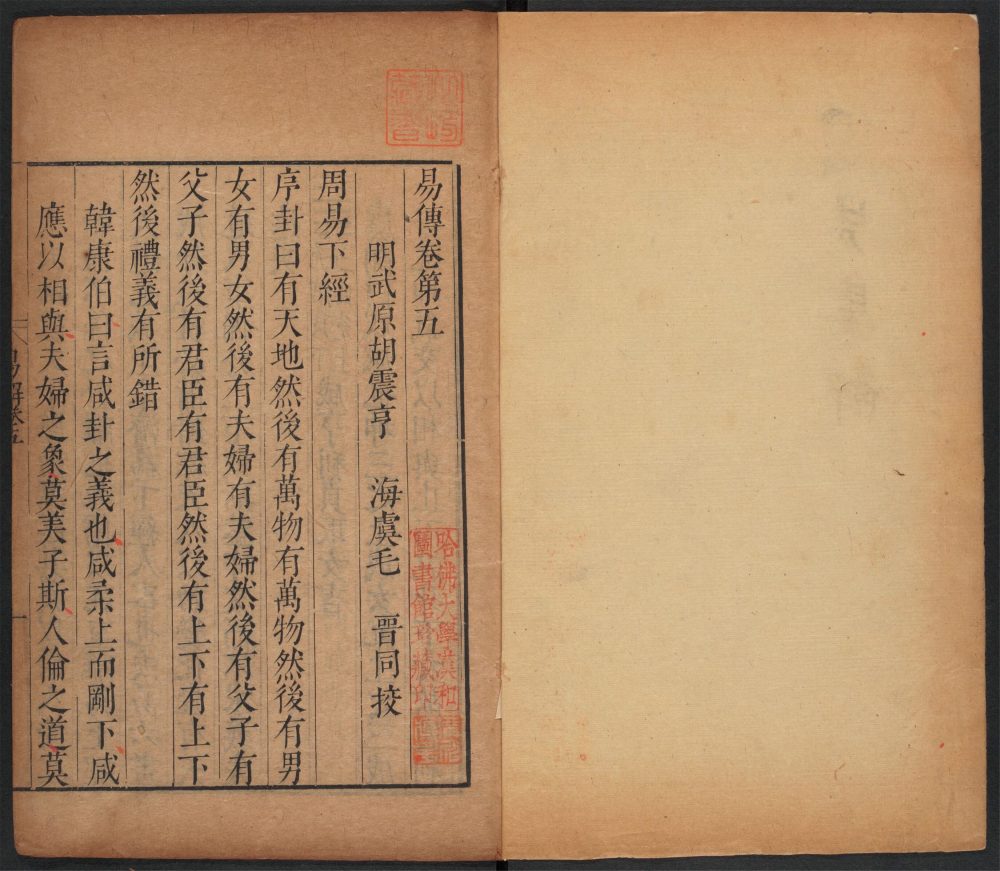 易傳卷第五
明武原胡震亨　海虞毛　晉同挍
周易下經
序卦曰有天地然後有萬物有萬物然後有男
女有男女然後有夫婦有夫婦然後有父子有
父子然後有君臣有君臣然後有上下有上下
然後禮義有所錯
韓康伯曰言咸卦之義也咸柔上而剛下感
應以相與夫婦之象莫美乎斯人倫之道莫
易解卷五
一
哈佛大學漢和
圖書館珍藏印